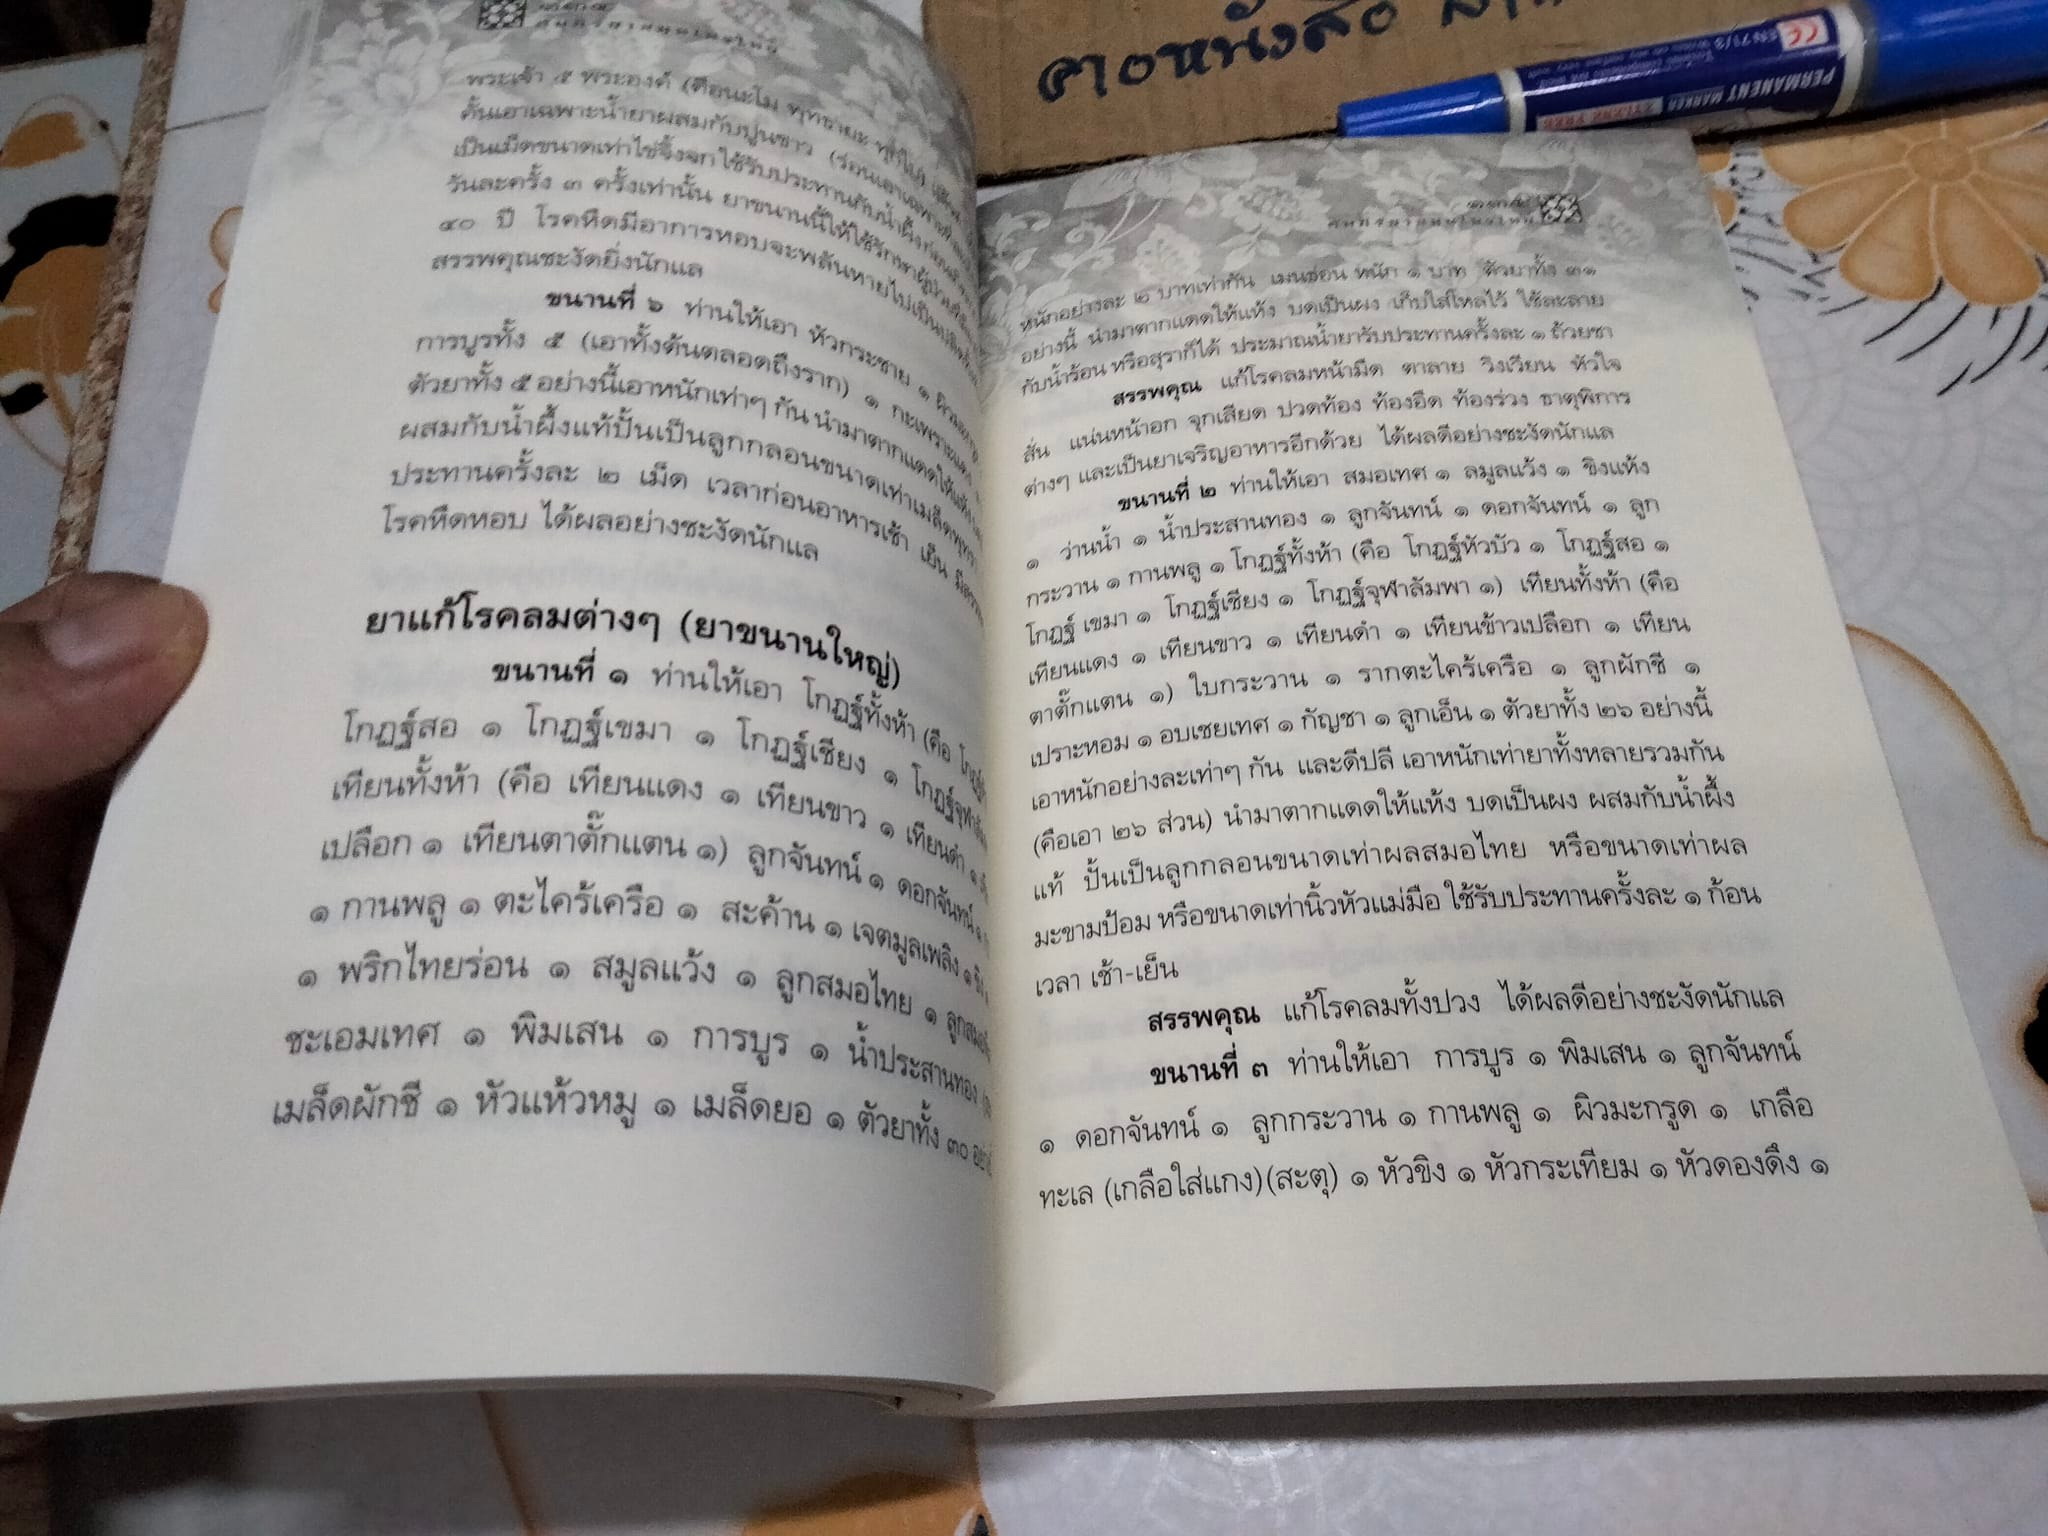 คาวหนังสือ
PERMANENT MARKER
XYLENE FREE
EN71/3
พระเจ้า ๕ พระองค์ (คือนะโม พุทธายะ
คั้นเอาเฉพาะน้ำยาผสมกับปูนขาว
เป็นเม็ดขนาดเท่าไข่จิ้งจกใช้รับประทานกับน้ำผึ้ง
วันละครั้ง ๓ ครั้งเท่านั้น ยาขนานนี้ให้ใช้รักษา
๔๐ ปี โรคหืดมีอาการหอบจะพลันหายไป
สรรพคุณชะงัดยิ่งนักแล
ขนานที่ ๖ ท่านให้เอา หัวกระชาย ๑
การบูรทั้ง ๕ (เอาทั้งต้นตลอดถึงราก) ๑ กะเพราะแดง
ตัวยาทั้ง ๕ อย่างนี้เอาหนักเท่าๆ กัน นำมาตากแดดให้แห้ง
ผสมกับน้ำผึ้งแท้ปั้นเป็นลูกกลอนขนาดเท่าเมล็ดพุทรา
ประทานครั้งละ ๒ เม็ด เวลาก่อนอาหารเช้า เย็น
โรคหืดหอบ ได้ผลอย่างชะงัดนักแล
ยาแก้โรคลมต่างๆ (ยาขนานใหญ่)
ขนานที่ ๑ ท่านให้เอา โกฏฐ์ทั้งห้า (คือ
โกฏฐ์สอ ๑ โกฏฐ์เขมา ๑ โกฏฐ์เชียง ๑
เทียนทั้งห้า (คือ เทียนแดง ๑ เทียนขาว ๑ เทียนดำ ๑
เปลือก ๑ เทียนตาตั๊กแตน ๑) ลูกจันทน์ ๑ ดอกจันทน์ ๑
๑ กานพลู ๑ ตะไคร้เครือ ๑ สะค้าน ๑ เจตมูลเพลิง ๑
๑ พริกไทยร่อน ๑ สมูลแว้ง ๑ ลูกสมอไทย ๑
ชะเอมเทศ ๑ พิมเสน ๑ การบูร ๑ น้ำประสานทอง
เมล็ดผักชี ๑ หัวแห้วหมู ๑ เมล็ดยอ ๑ ตัวยาทั้ง ๓๐
หนักอย่างละ ๒ บาทเท่ากัน เมนซ่อน หนัก ๑ บาท ตัวยาทั้ง ๓๑
อย่างนี้ นำมาตากแดดให้แห้ง บดเป็นผง เก็บใส่โหลไว้ ใช้ละลาย
กับน้ำร้อน หรือสุราก็ได้ ประมาณน้ำยารับประทานครั้งละ ๑ ถ้วยชา
สรรพคุณ แก้โรคลมหน้ามืด ตาลาย วิงเวียน หัวใจ
สั่น แน่นหน้าอก จุกเสียด ปวดท้อง ท้องอืด ท้องร่วง ธาตุพิการ
ต่างๆ และเป็นยาเจริญอาหารอีกด้วย ได้ผลดีอย่างชะงัดนักแล
ขนานที่ ๒ ท่านให้เอา สมอเทศ ๑ ลมูลแว้ง ๑ ขิงแห้ง
๑ ว่านน้ำ ๑ น้ำประสานทอง ๑ ลูกจันทน์ ๑ ดอกจันทน์ ๑ ลูก
กระวาน ๑ กานพลู ๑ โกฏฐ์ทั้งห้า (คือ โกฏฐ์หัวบัว ๑ โกฏฐ์สอ ๑
โกฏฐ์ เขมา ๑ โกฏฐ์เชียง ๑ โกฏฐ์จุฬาลัมพา ๑) เทียนทั้งห้า (คือ
เทียนแดง ๑ เทียนขาว ๑ เทียนดำ ๑ เทียนข้าวเปลือก ๑ เทียน
ตาตั๊กแตน ๑) ใบกระวาน ๑ รากตะไคร้เครือ ๑ ลูกผักชี ๑
เปราะหอม ๑ อบเชยเทศ ๑ กัญชา ๑ ลูกเอ็น ๑ ตัวยาทั้ง ๒๖ อย่างนี้
เอาหนักอย่างละเท่าๆ กัน และดีปลี เอาหนักเท่ายาทั้งหลายรวมกัน
(คือเอา ๒๖ ส่วน) นำมาตากแดดให้แห้ง บดเป็นผง ผสมกับน้ำผึ้ง
แท้ ปั้นเป็นลูกกลอนขนาดเท่าผลสมอไทย หรือขนาดเท่าผล
มะขามป้อม หรือขนาดเท่านิ้วหัวแม่มือ ใช้รับประทานครั้งละ ๑ ก้อน
เวลา เช้า-เย็น
สรรพคุณ แก้โรคลมทั้งปวง ได้ผลดีอย่างชะงัดนักแล
ขนานที่ ๓ ท่านให้เอา การบูร ๑ พิมเสน ๑ ลูกจันทน์
๑ ดอกจันทน์ ๑ ลูกกระวาน ๑ กานพลู ๑ ผิวมะกรูด ๑ เกลือ
ทะเล (เกลือใส่แกง)(สะตุ) ๑ หัวขิง ๑ หัวกระเทียม ๑ หัวดองดึง ๑